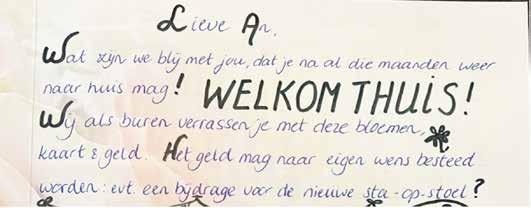 Lieve An,
Wat zijn we blij met jou, dat je na al die maanden weer
naar huis mag! WELKOM THUIS!
Wij als buren verrassen je met deze bloemen,
kaart & geld. Het geld mag naar eigen wens besteed
worden: evt. een bijdrage voor de nieuwe sta-op-stoel?